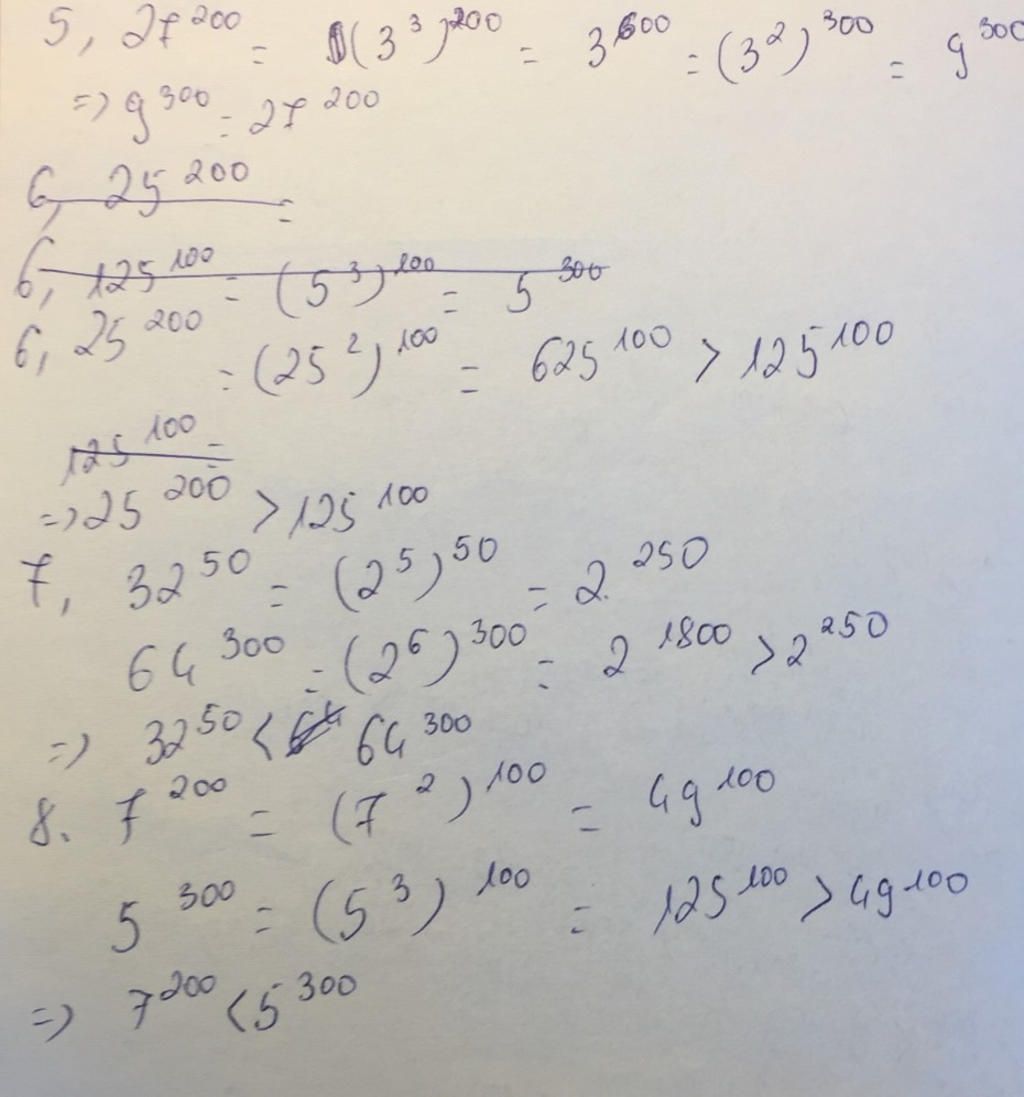 5, 27²⁰⁰ = (3³)²⁰⁰ = 3⁶⁰⁰ = (3²)³⁰⁰ = 9³⁰⁰
=> 9³⁰⁰ = 27²⁰⁰
6, 25²⁰⁰ =
6, 125¹⁰⁰ = (5³)¹⁰⁰ = 5³⁰⁰
6, 25²⁰⁰ = (25²)¹⁰⁰ = 625¹⁰⁰ > 125¹⁰⁰
125¹⁰⁰ =
=> 25²⁰⁰ > 125¹⁰⁰
7, 32⁵⁰ = (2⁵)⁵⁰ = 2²⁵⁰
64³⁰⁰ = (2⁶)³⁰⁰ = 2¹⁸⁰⁰ > 2²⁵⁰
=> 32⁵⁰ < 64³⁰⁰
8. 7²⁰⁰ = (7²)¹⁰⁰ = 49¹⁰⁰
5³⁰⁰ = (5³)¹⁰⁰ = 125¹⁰⁰ > 49¹⁰⁰
=> 7²⁰⁰ < 5³⁰⁰